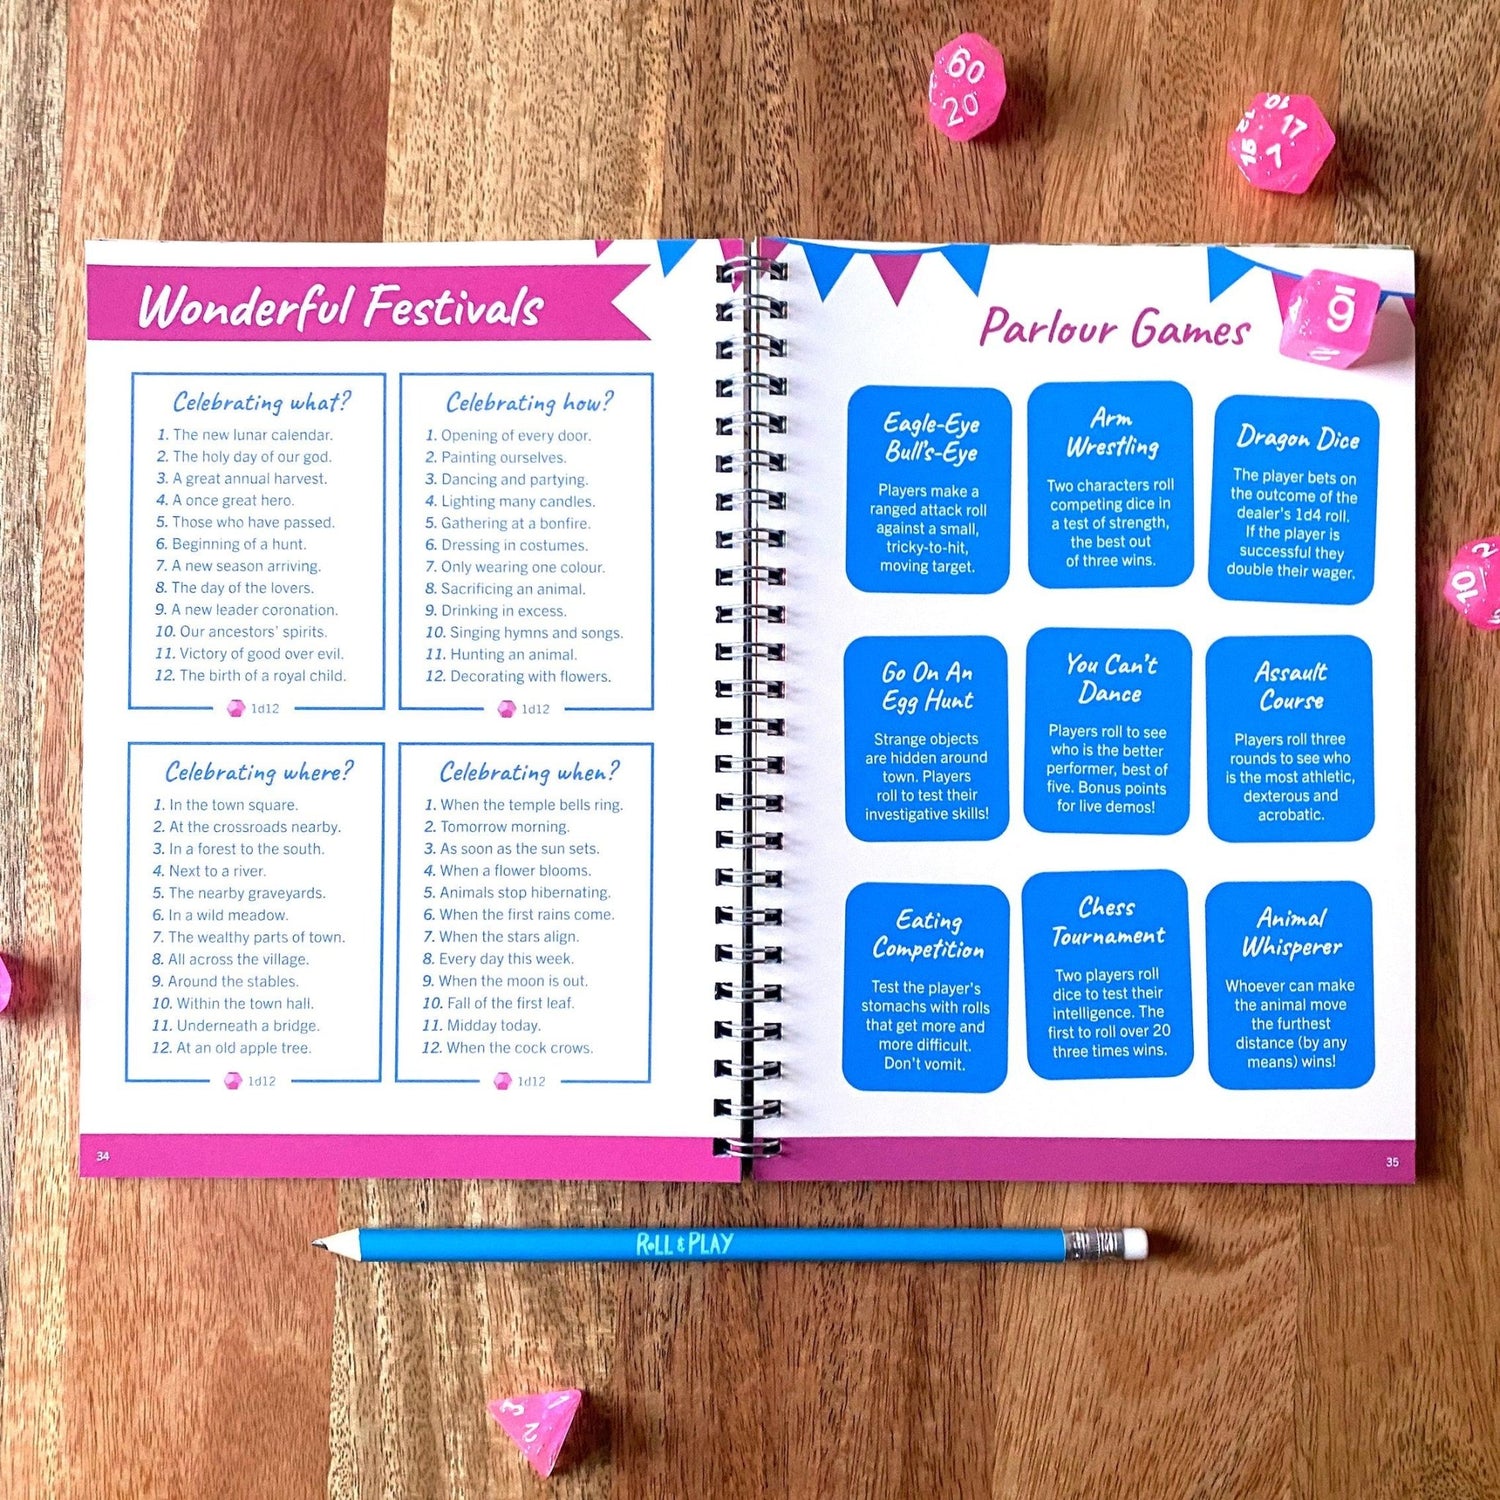 Wonderful Festivals
Celebrating what?
1. The new lunar calendar.
2. The holy day of our god.
3. A great annual harvest.
4. A once great hero.
5. Those who have passed.
6. Beginning of a hunt.
7. A new season arriving.
8. The day of the lovers.
9. A new leader coronation.
10. Our ancestors' spirits.
11. Victory of good over evil.
12. The birth of a royal child.
1d12
Celebrating how?
1. Opening of every door.
2. Painting ourselves.
3. Dancing and partying.
4. Lighting many candles.
5. Gathering at a bonfire.
6. Dressing in costumes.
7. Only wearing one colour.
8. Sacrificing an animal.
9. Drinking in excess.
10. Singing hymns and songs.
11. Hunting an animal.
12. Decorating with flowers.
1d12
Celebrating where?
1. In the town square.
2. At the crossroads nearby.
3. In a forest to the south.
4. Next to a river.
5. The nearby graveyards.
6. In a wild meadow.
7. The wealthy parts of town.
8. All across the village.
9. Around the stables.
10. Within the town hall.
11. Underneath a bridge.
12. At an old apple tree.
1d12
Celebrating when?
1. When the temple bells ring.
2. Tomorrow morning.
3. As soon as the sun sets.
4. When a flower blooms.
5. Animals stop hibernating.
6. When the first rains come.
7. When the stars align.
8. Every day this week.
9. When the moon is out.
10. Fall of the first leaf.
11. Midday today.
12. When the cock crows.
1d12
34
Parlour Games
Eagle-Eye
Bull's-Eye
Players make a
ranged attack roll
against a small,
tricky-to-hit,
moving target.
Arm
Wrestling
Two characters roll
competing dice in
a test of strength,
the best out
of three wins.
Dragon Dice
The player bets on
the outcome of the
dealer's 1d4 roll.
If the player is
successful they
double their wager.
Go On An
Egg Hunt
Strange objects
are hidden around
town. Players
roll to test their
investigative skills!
You Can't
Dance
Players roll to see
who is the better
performer, best of
five. Bonus points
for live demos!
Assault
Course
Players roll three
rounds to see who
is the most athletic,
dexterous and
acrobatic.
Eating
Competition
Test the player's
stomachs with rolls
that get more and
more difficult.
Don't vomit.
Chess
Tournament
Two players roll
dice to test their
intelligence. The
first to roll over 20
three times wins.
Animal
Whisperer
Whoever can make
the animal move
the furthest
distance (by any
means) wins!
35
ROLL & PLAY
60
20
17
7
12
15
10
9
2
10
2
3
2
1